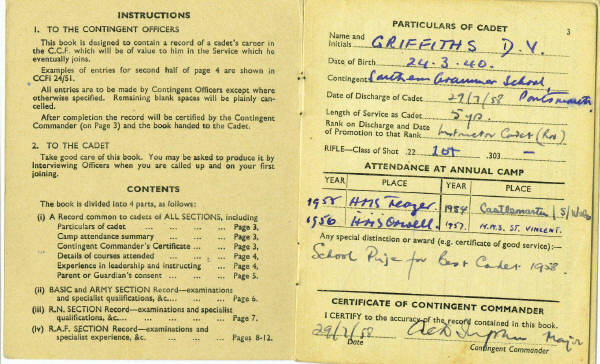 INSTRUCTIONS
1. TO THE CONTINGENT OFFICERS
This book is designed to contain a record of a cadet's career
in the C.C.F. which will be of value to him in the Service which he
eventually joins.
Examples of entries for second half of page 4 are shown in
CCFI 24/51.
All entries are to be made by Contingent Officers except where
otherwise specified. Remaining blank spaces will be plainly can-
celled.
After completion the record will be certified by the Contingent
Commander (on Page 3) and the book handed to the Cadet.
2. TO THE CADET
Take good care of this book. You may be asked to produce it by
Interviewing Officers when you are called up and on your first
joining.
CONTENTS
The book is divided into 4 parts, as follows:
(i) A Record common to cadets of ALL SECTIONS, including
Particulars of cadet ... ... ... Page 3,
Camp attendance summary ... ... ... Page 3,
Contingent Commander's Certificate ... ... Page 3,
Details of courses attended ... ... ... Page 4,
Experience in leadership and instructing ... Page 4,
Parent or Guardian's consent ... ... Page 5.
(ii) BASIC and ARMY SECTION Record—examinations
and specialist qualifications, &c.... ... Page 6.
(iii) R.N. SECTION Record—examinations and specialist
qualifications, &c.... ... ... ... Page 7.
(iv) R.A.F. SECTION Record—examinations and
specialist experience, &c. ... ... Pages 8-12.
3
PARTICULARS OF CADET
Name and Initials GRIFFITHS D.V.
Date of Birth 24.3.40.
Contingent Southern Grammar School,
Portsmouth
Date of Discharge of Cadet 29/7/58
Length of Service as Cadet 5 yrs.
Rank on Discharge and Date of Promotion to that Rank Instructor Cadet
RIFLE—Class of Shot .22 1st .303 —
ATTENDANCE AT ANNUAL CAMP
YEAR PLACE YEAR PLACE
1955 HMS 1954 Castlemartin S/Wales
1956 HMS Orwell. 1957. H.M.S. ST. VINCENT.
Any special distinction or award (e.g. certificate of good service):—
School Prize for Best Cadet 1958.
CERTIFICATE OF CONTINGENT COMMANDER
I CERTIFY to the accuracy of the record contained in this book.
29/7/58 Major
Date Contingent Commander